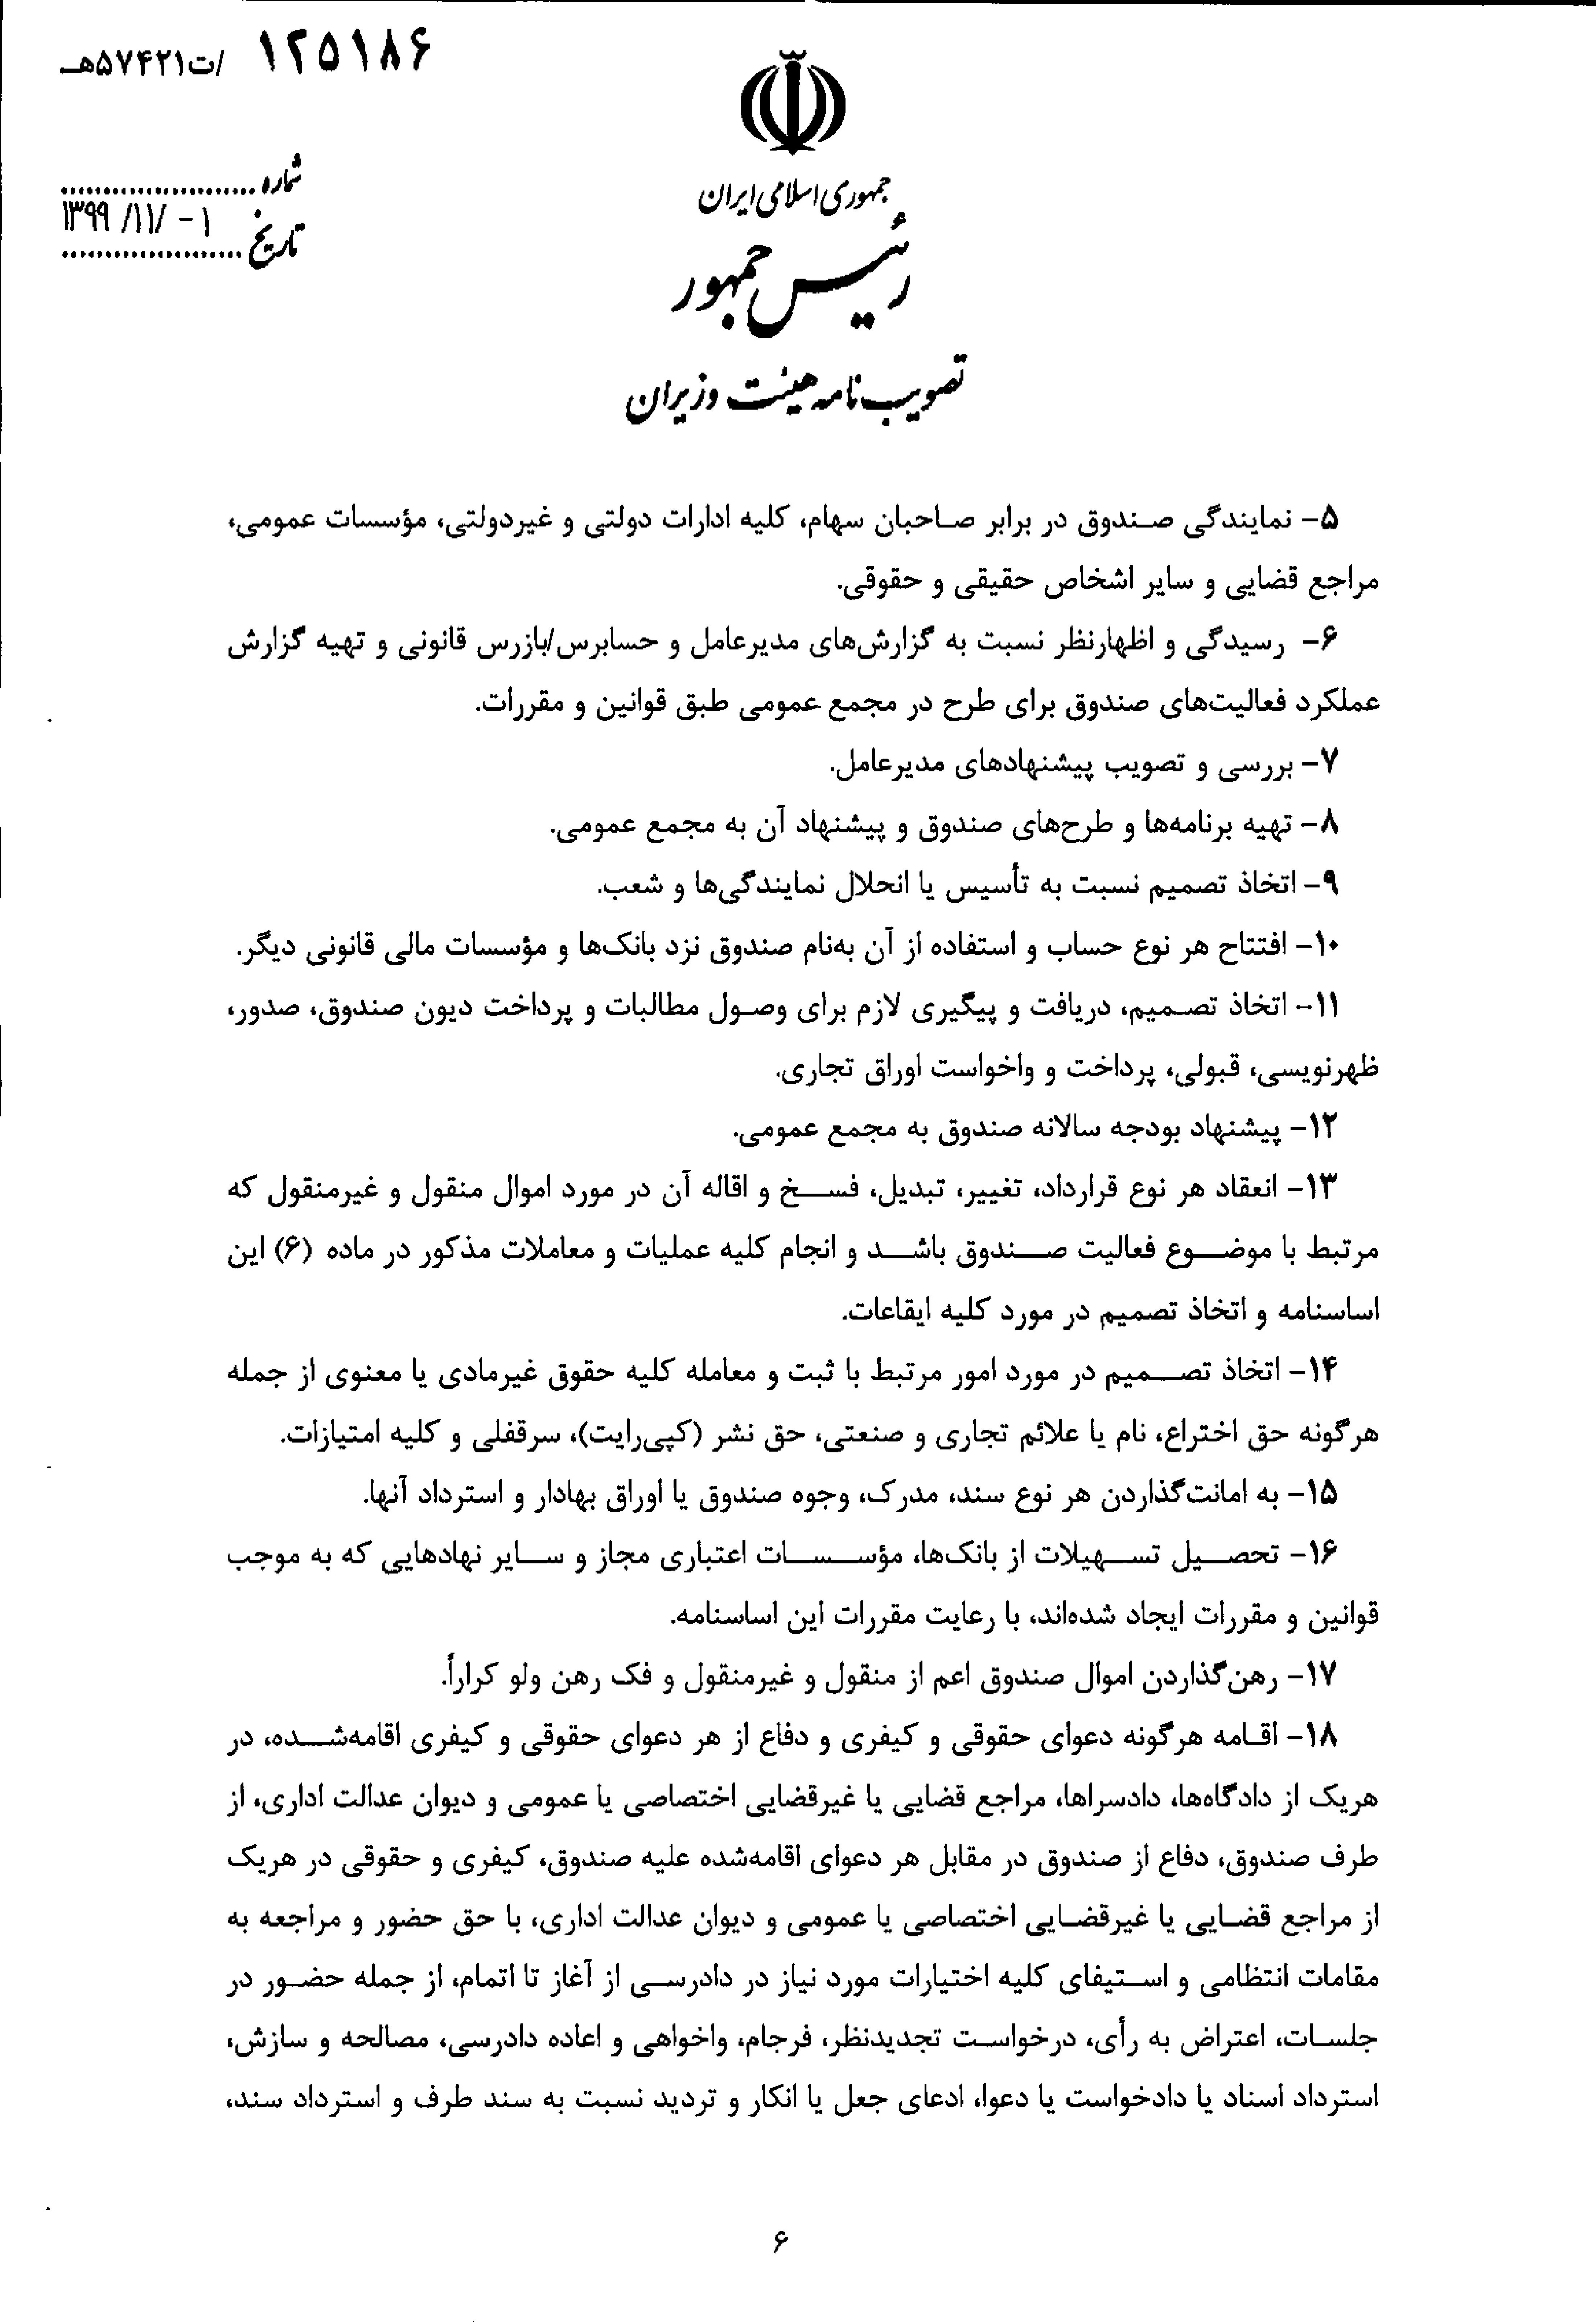 ۱۲۵۱۸۶ /ت۵۷۴۲۱هـ
جمهوری اسلامی ایران
رئیس جمهور
تصویب‌نامه هیئت وزیران
شماره ......................
تاریخ ۱ -/۱۱/ ۱۳۹۹
۵- نمایندگی صندوق در برابر صاحبان سهام، کلیه ادارات دولتی و غیردولتی، مؤسسات عمومی،
مراجع قضایی و سایر اشخاص حقیقی و حقوقی.
۶- رسیدگی و اظهارنظر نسبت به گزارش‌های مدیرعامل و حسابرس/بازرس قانونی و تهیه گزارش
عملکرد فعالیت‌های صندوق برای طرح در مجمع عمومی طبق قوانین و مقررات.
۷- بررسی و تصویب پیشنهادهای مدیرعامل.
۸- تهیه برنامه‌ها و طرح‌های صندوق و پیشنهاد آن به مجمع عمومی.
۹- اتخاذ تصمیم نسبت به تأسیس یا انحلال نمایندگی‌ها و شعب.
۱۰- افتتاح هر نوع حساب و استفاده از آن به‌نام صندوق نزد بانک‌ها و مؤسسات مالی قانونی دیگر.
۱۱- اتخاذ تصمیم، دریافت و پیگیری لازم برای وصول مطالبات و پرداخت دیون صندوق، صدور،
ظهرنویسی، قبولی، پرداخت و واخواست اوراق تجاری.
۱۲- پیشنهاد بودجه سالانه صندوق به مجمع عمومی.
۱۳- انعقاد هر نوع قرارداد، تغییر، تبدیل، فسخ و اقاله آن در مورد اموال منقول و غیرمنقول که
مرتبط با موضوع فعالیت صندوق باشد و انجام کلیه عملیات و معاملات مذکور در ماده (۶) این
اساسنامه و اتخاذ تصمیم در مورد کلیه ایقاعات.
۱۴- اتخاذ تصمیم در مورد امور مرتبط با ثبت و معامله کلیه حقوق غیرمادی یا معنوی از جمله
هرگونه حق اختراع، نام یا علائم تجاری و صنعتی، حق نشر (کپی‌رایت)، سرقفلی و کلیه امتیازات.
۱۵- به امانت‌گذاردن هر نوع سند، مدرک، وجوه صندوق یا اوراق بهادار و استرداد آنها.
۱۶- تحصیل تسهیلات از بانک‌ها، مؤسسات اعتباری مجاز و سایر نهادهایی که به موجب
قوانین و مقررات ایجاد شده‌اند، با رعایت مقررات این اساسنامه.
۱۷- رهن‌گذاردن اموال صندوق اعم از منقول و غیرمنقول و فک رهن ولو کراراً.
۱۸- اقامه هرگونه دعوای حقوقی و کیفری و دفاع از هر دعوای حقوقی و کیفری اقامه‌شده، در
هریک از دادگاه‌ها، دادسراها، مراجع قضایی یا غیرقضایی اختصاصی یا عمومی و دیوان عدالت اداری، از
طرف صندوق، دفاع از صندوق در مقابل هر دعوای اقامه‌شده علیه صندوق، کیفری و حقوقی در هریک
از مراجع قضایی یا غیرقضایی اختصاصی یا عمومی و دیوان عدالت اداری، با حق حضور و مراجعه به
مقامات انتظامی و استیفای کلیه اختیارات مورد نیاز در دادرسی از آغاز تا اتمام، از جمله حضور در
جلسات، اعتراض به رأی، درخواست تجدیدنظر، فرجام، واخواهی و اعاده دادرسی، مصالحه و سازش،
استرداد اسناد یا دادخواست یا دعوا، ادعای جعل یا انکار و تردید نسبت به سند طرف و استرداد سند،
۶